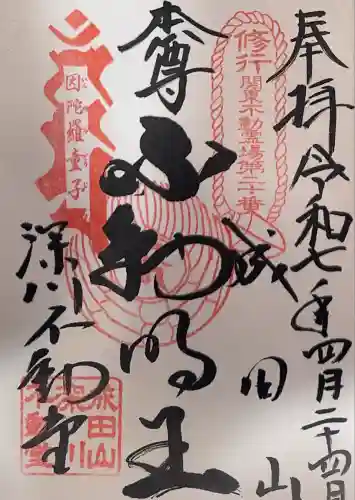 奉拝 令和七年四月二十四日
修行 関東不動霊場第二十番
成田山
本尊
不動明王
因陀羅童子
深川不動堂
成田山
深川
不動堂